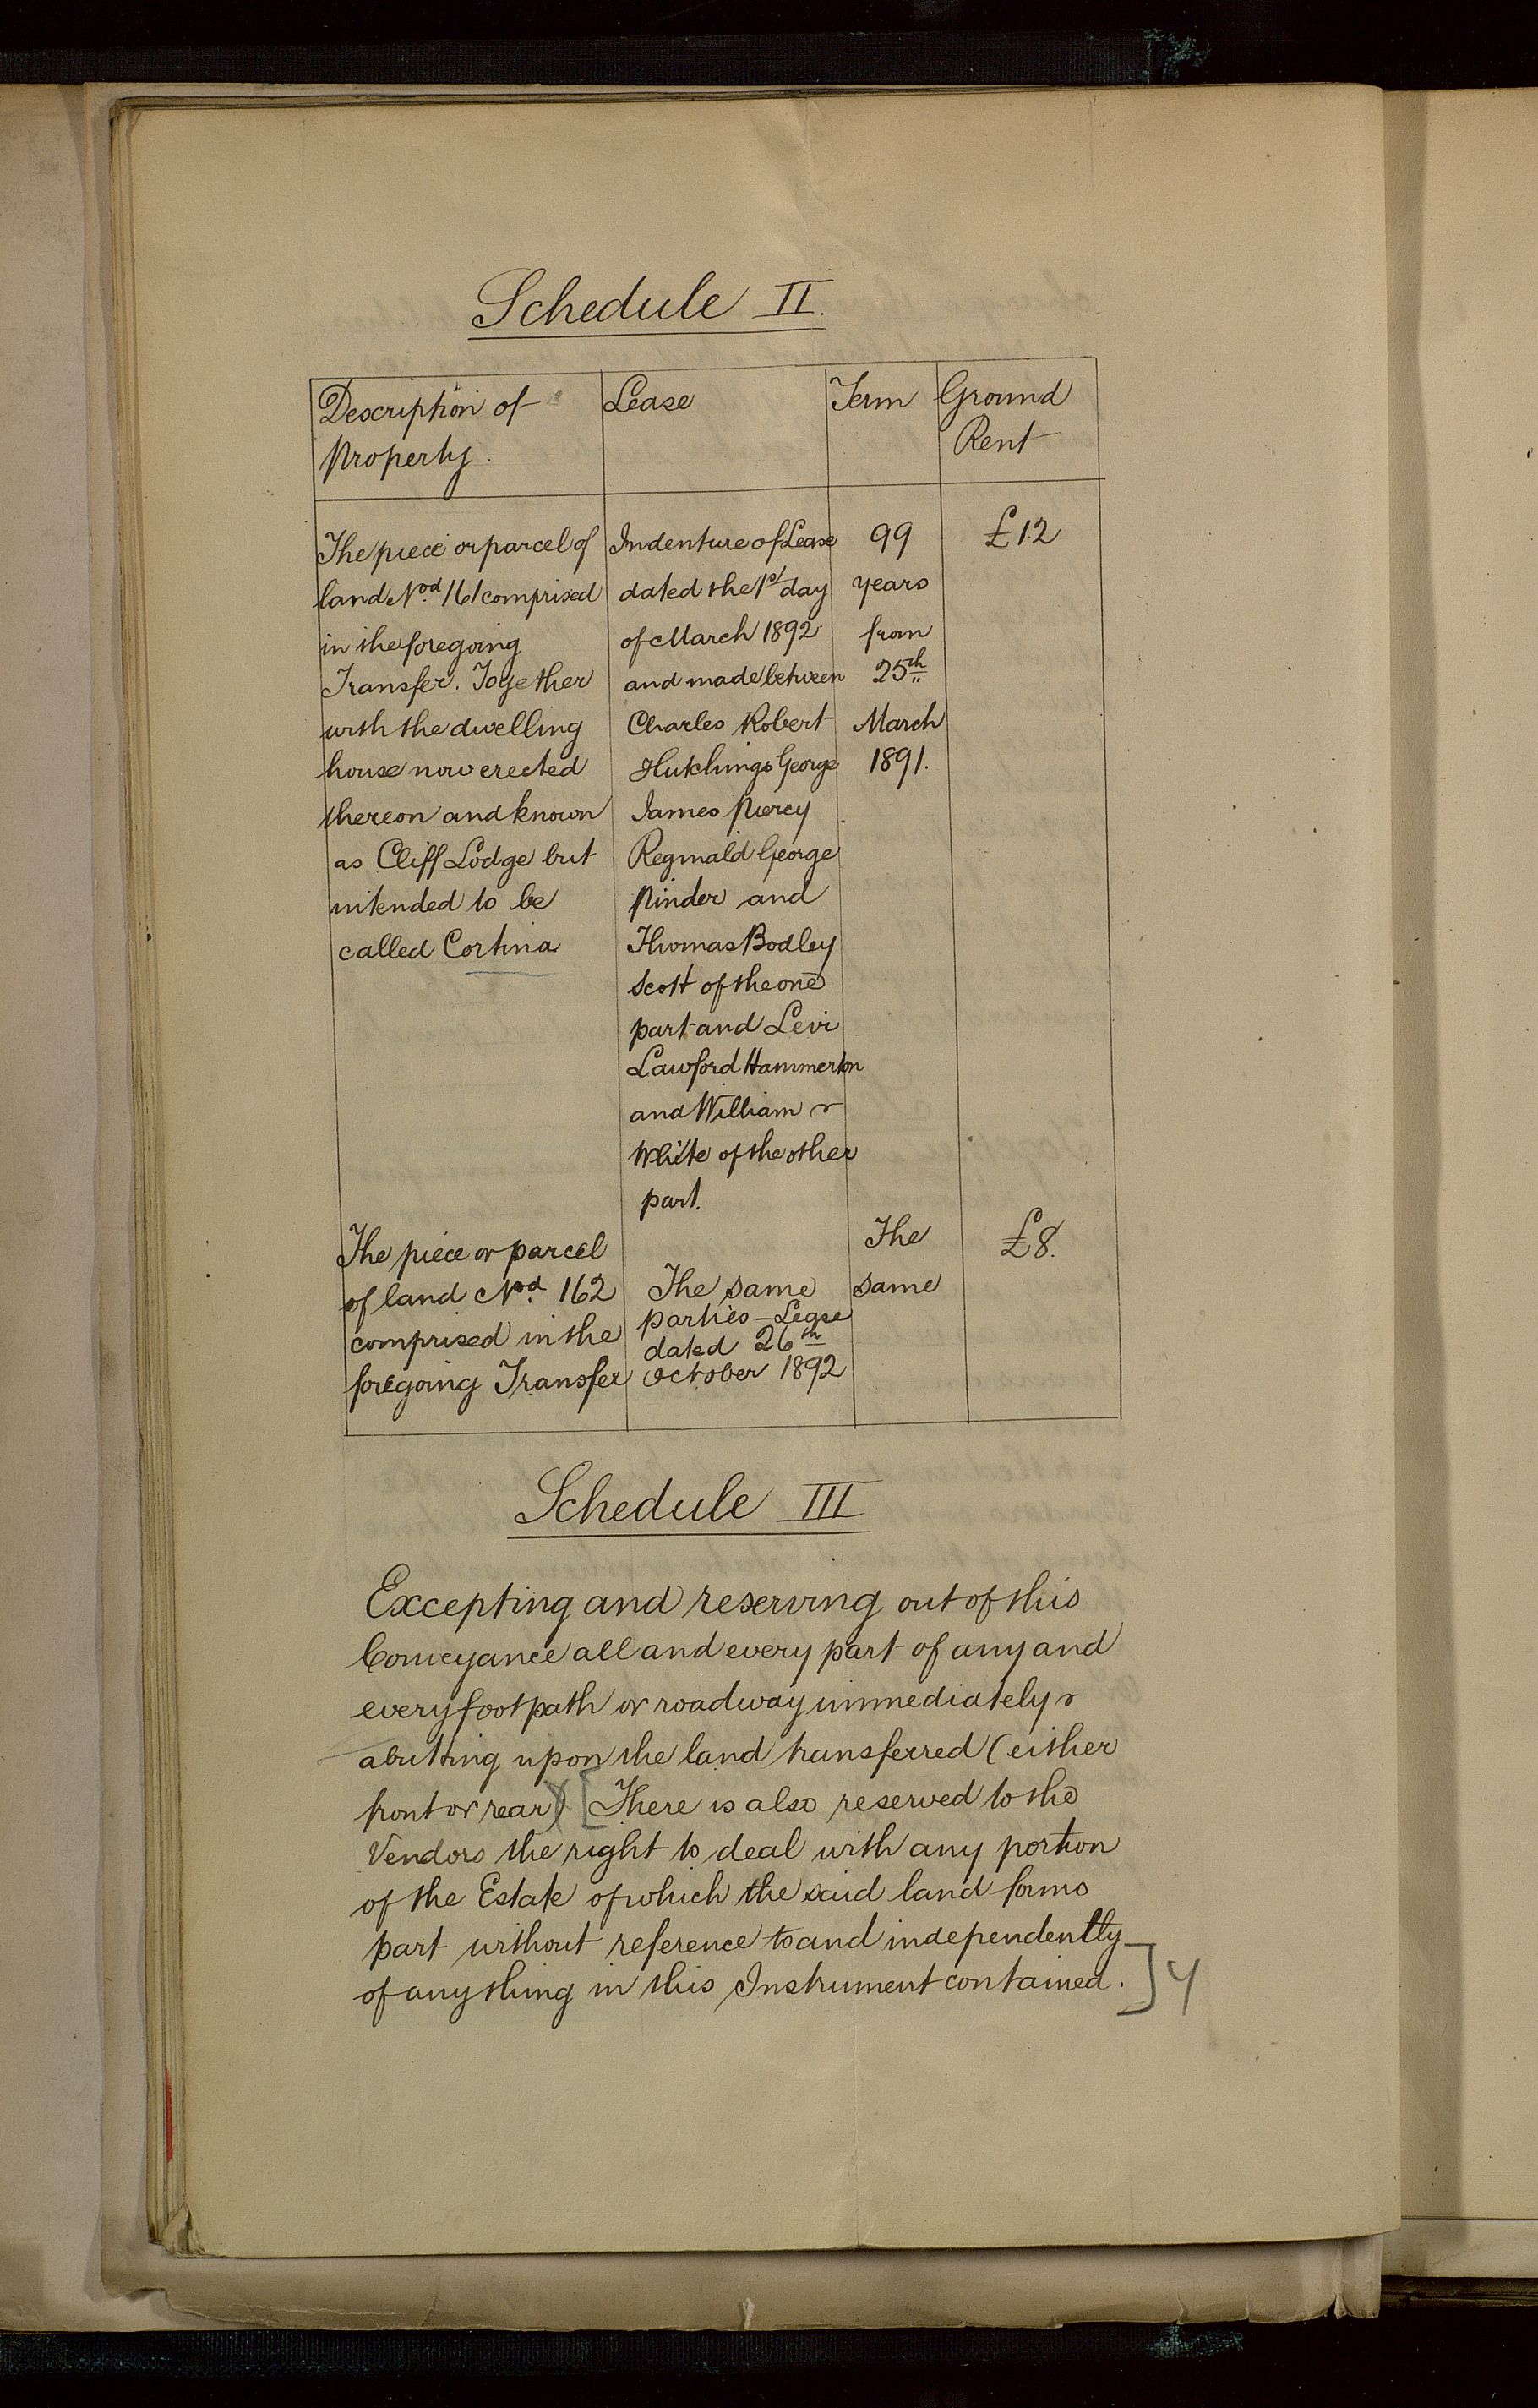 Schedule II.
Description of Property.
Lease
Term
Ground Rent
The piece or parcel of
land No.d 161 comprised
in the foregoing
Transfer. Together
with the dwelling
house now erected
thereon and known
as Cliff Lodge but
intended to be
called Cortina
Indenture of Lease
dated the 1st day
of March 1892
and made between
Charles Robert
Hutchings George
James Piercy
Reginald George
Pinder and
Thomas Bodley
Scott of the one
part and Levi
Lawford Hammerton
and William
White of the other
part.
99
years
from
25th
March
1891.
£12
The piece or parcel
of land No.d 162
comprised in the
foregoing Transfer
The same
parties - Lease
dated 26th
October 1892
The
same
£8.
Schedule III
Excepting and reserving out of this
Conveyance all and every part of any and
every footpath or roadway immediately
abutting upon the land transferred (either
front or rear) [There is also reserved to the
Vendors the right to deal with any portion
of the Estate of which the said land forms
part without reference to and independently
of anything in this Instrument contained.]